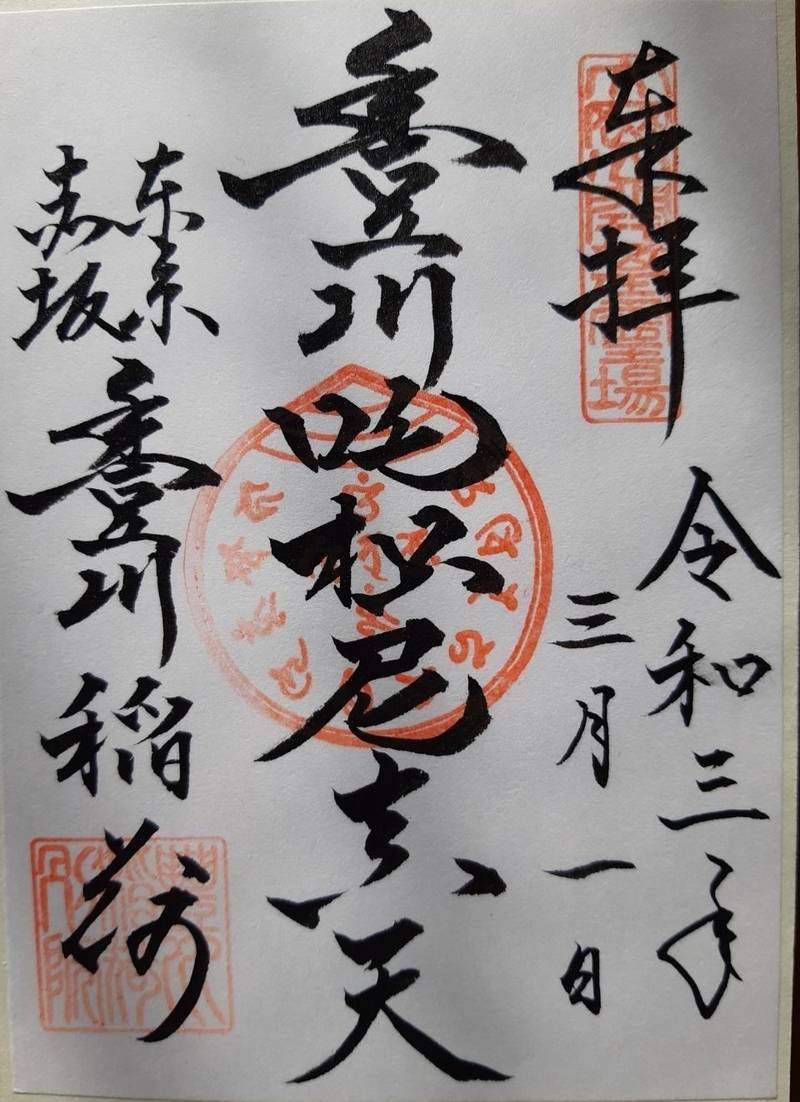 奉拝
令和三年
三月一日
豊川吒枳尼真天
東京
赤坂
豊川稲荷